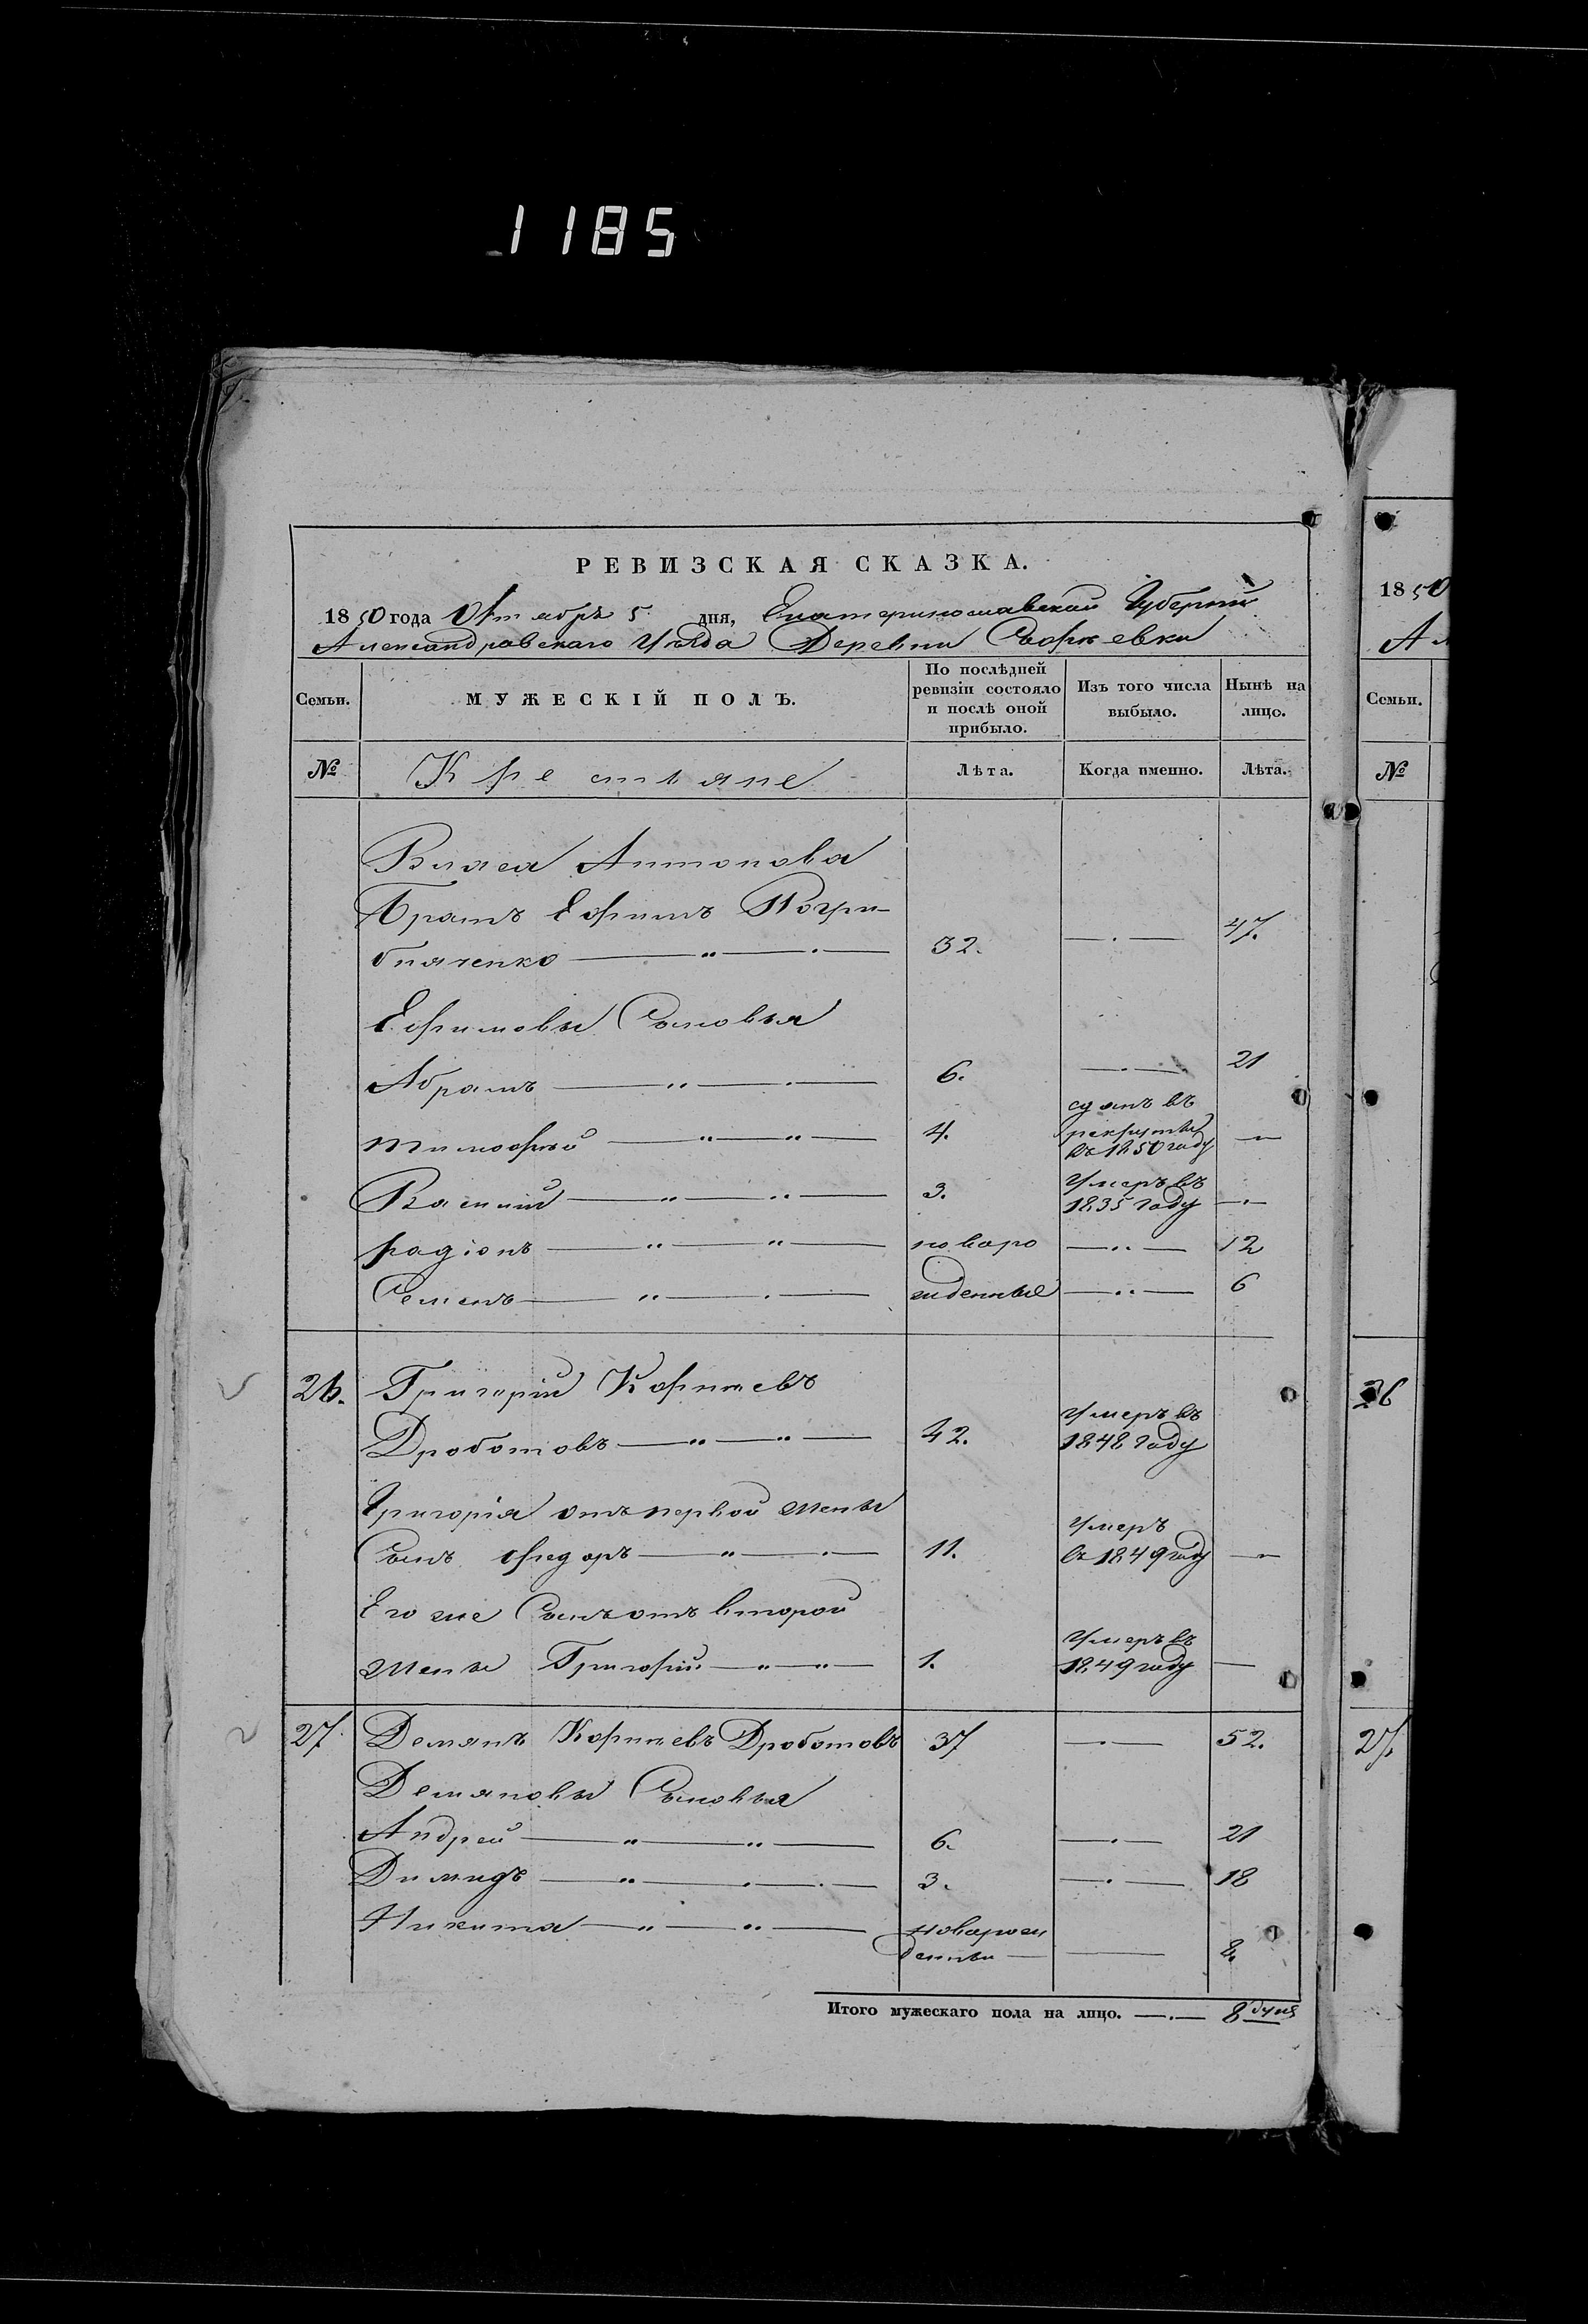 1185
РЕВИЗСКАЯ СКАЗКА.
1850 года Октября 5 дня, Екатеринославской Губернии
Александровскаго Уѣзда Деревни Софіевки
Семьи.
МУЖЕСКІЙ ПОЛЪ.
По послѣдней ревизіи состояло и послѣ оной прибыло.
Изъ того числа выбыло.
Нынѣ на лицо.
№
Крестьяне
Лѣта.
Когда именно.
Лѣта.
Власа Антонова
Братъ Ефимъ Погри-
бняченко 32. 47.
Ефимовы Сыновья
Абрамъ 6. 21
Тимофѣй 4. сданъ въ рекруты въ 1850 году
Василій 3. Умеръ въ 1835 году
Радіонъ новоро 12
Семенъ жденные 6
26. Григорій Корнѣевъ
Дроботовъ 42. Умеръ въ 1848 году
Григорія отъ первой жены
Сынъ Федоръ 11. Умеръ въ 1849 году
Его же Сынъ отъ второй
жены Григорій 1. Умеръ въ 1849 году
27. Демянъ Корнѣевъ Дроботовъ 37 52.
Демяновы Сыновья
Андрей 6. 21
Димидъ 3. 18
Никита новорож
денны 8.
Итого мужескаго пола на лицо. 8 душъ
1850
Ал
Семьи.
№
26
27.